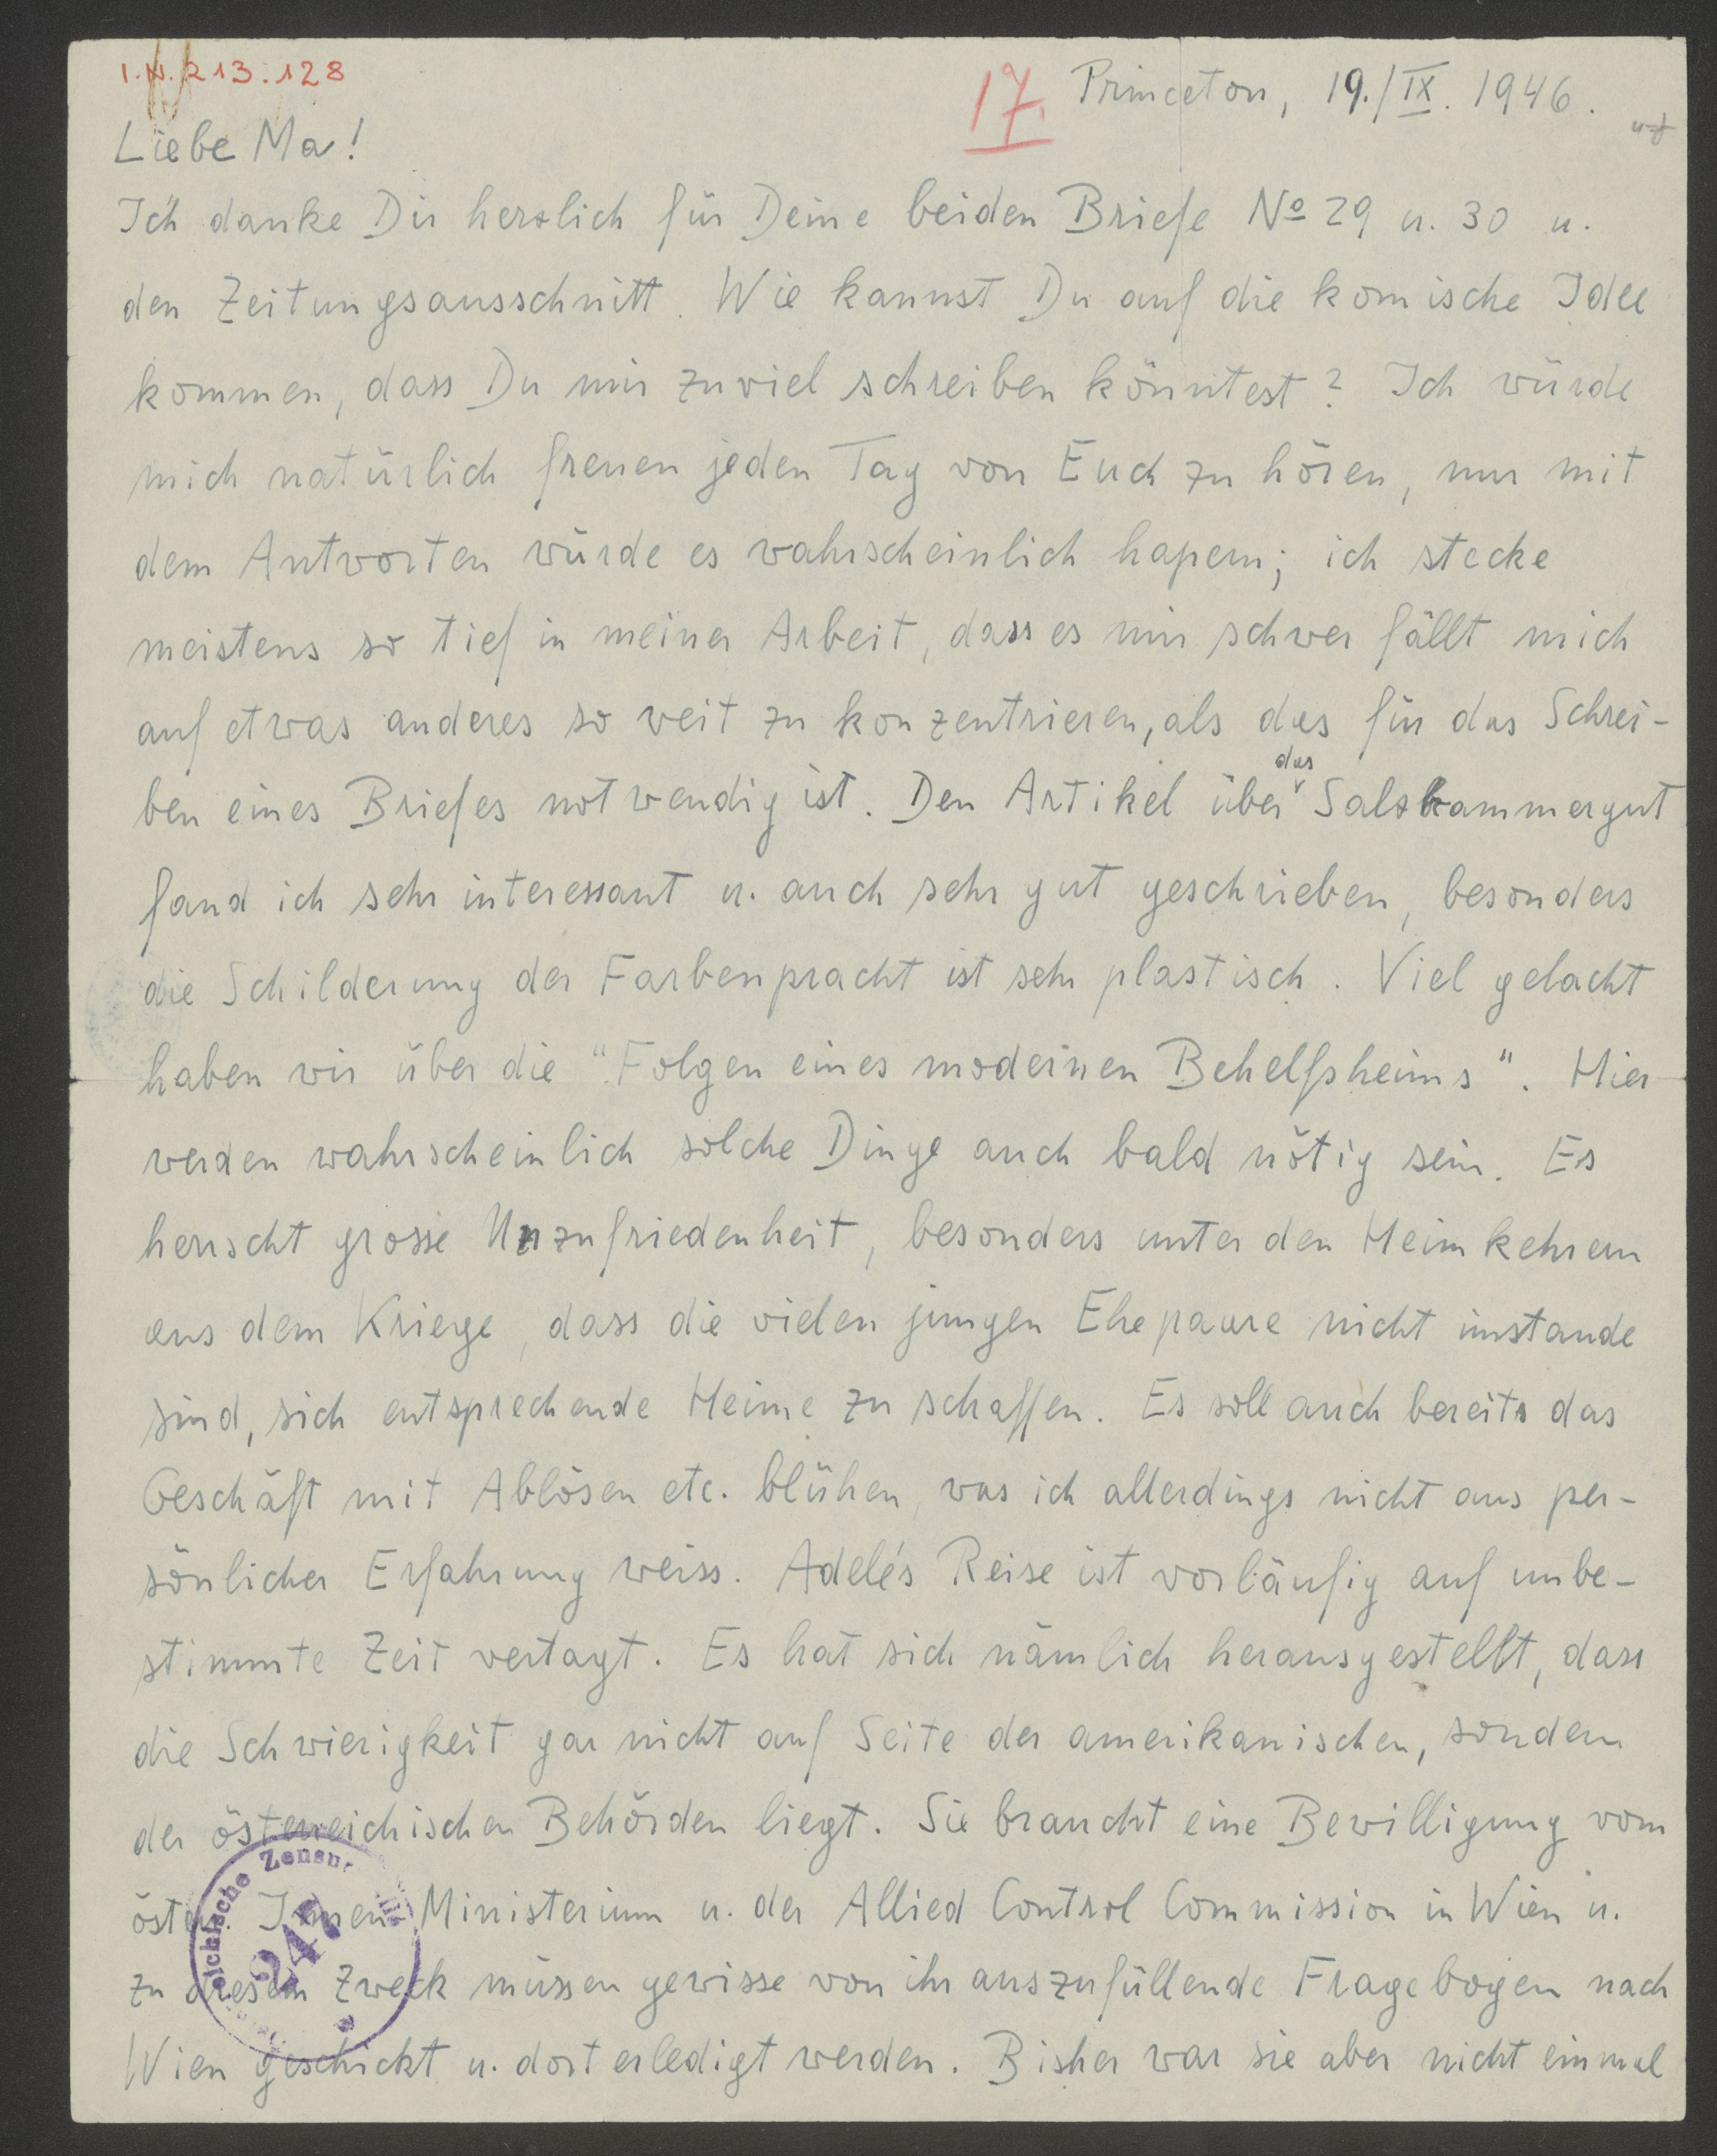 I.N. 213.128
17. Princeton, 19./IX. 1946.
Liebe Ma!
Ich danke Dir herzlich für Deine beiden Briefe No 29 u. 30 u.
den Zeitungsausschnitt. Wie kannst Du auf die komische Idee
kommen, dass Du mir zuviel schreiben könntest? Ich würde
mich natürlich freuen jeden Tag von Euch zu hören, nur mit
dem Antworten würde es wahrscheinlich hapern; ich stecke
meistens so tief in meiner Arbeit, dass es mir schwer fällt mich
auf etwas anderes so weit zu konzentrieren, als das für das Schrei-
ben eines Briefes notwendig ist. Den Artikel über das Salzkammergut
fand ich sehr interessant u. auch sehr gut geschrieben, besonders
die Schilderung der Farbenpracht ist sehr plastisch. Viel gelacht
haben wir über die "Folgen eines modernen Behelfsheims". Hier
werden wahrscheinlich solche Dinge auch bald nötig sein. Es
herrscht grosse Unzufriedenheit, besonders unter den Heimkehrern
aus dem Kriege, dass die vielen jungen Ehepaare nicht imstande
sind, sich entsprechende Heime zu schaffen. Es soll auch bereits das
Geschäft mit Ablösen etc. blühen, was ich allerdings nicht aus per-
sönlicher Erfahrung weiss. Adele's Reise ist vorläufig auf unbe-
stimmte Zeit vertagt. Es hat sich nämlich herausgestellt, dass
die Schwierigkeit gar nicht auf Seite der amerikanischen, sondern
der österreichischen Behörden liegt. Sie braucht eine Bewilligung vom
österr. Innen-Ministerium u. der Allied Control Commission in Wien u.
zu diesem Zweck müssen gewisse von ihr auszufüllende Fragebogen nach
Wien geschickt u. dort erledigt werden. Bisher war sie aber nicht einmal
Zensur
247